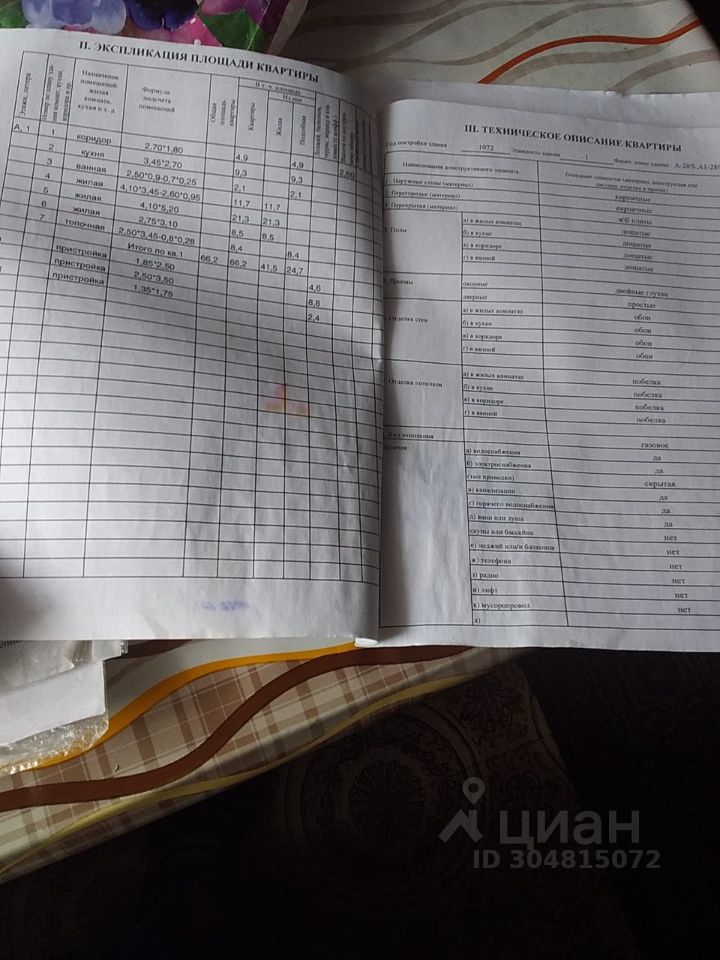 II. ЭКСПЛИКАЦИЯ ПЛОЩАДИ КВАРТИРЫ
Этажи, литера
Назначение помещений: жилая комната, кухня и т. д.
Формула подсчета помещений
Общая площадь квартиры
В т. ч. площадь
Из нее
Квартиры
Жилая
Подсобная
А, 1 1 коридор 2,70*1,80 4,9 4,9 2,60
2 кухня 3,45*2,70 9,3 9,3
3 ванная 2,50*0,9-0,7*0,25 2,1 2,1
4 жилая 4,10*3,45-2,60*0,95 11,7 11,7
5 жилая 4,10*5,20 21,3 21,3
6 жилая 2,75*3,10 8,5 8,5
7 топочная 2,50*3,45-0,8*0,28 8,4 8,4
Итого по кв.1 66,2 66,2 41,5 24,7
пристройка 1,85*2,50 4,6
пристройка 2,50*3,50 8,8
пристройка 1,35*1,75 2,4
III. ТЕХНИЧЕСКОЕ ОПИСАНИЕ КВАРТИРЫ
Год постройки здания 1972 Этажность здания 1 Физич. износ здания А-28%,А1-28
Наименование конструктивного элемента
Описание элементов (материал, конструкция или система, отделка и прочее)
1. Наружные стены (материал) кирпичные
2. Перегородки (материал) кирпичные
3. Перекрытия (материал) ж\б плиты
Полы а) в жилых комнатах дощатые
б) в кухне дощатые
в) в коридоре дощатые
г) в ванной дощатые
Проемы оконные двойные глухие
дверные простые
Отделка стен а) в жилых комнатах обои
б) в кухне обои
в) в коридоре обои
г) в ванной обои
Отделка потолков а) в жилых комнатах побелка
б) в кухне побелка
в) в коридоре побелка
г) в ванной побелка
Вид отопления газовое
Наличие: а) водоснабжения да
б) электроснабжения да
(тип проводки) скрытая
в) канализации да
г) горячего водоснабжения да
д) ванн или душа да
сауны или бассейна нет
е) лоджий или/и балконов нет
ж) телефона нет
з) радио нет
и) лифт нет
к) мусоропровод нет
л)
циан
ID 304815072